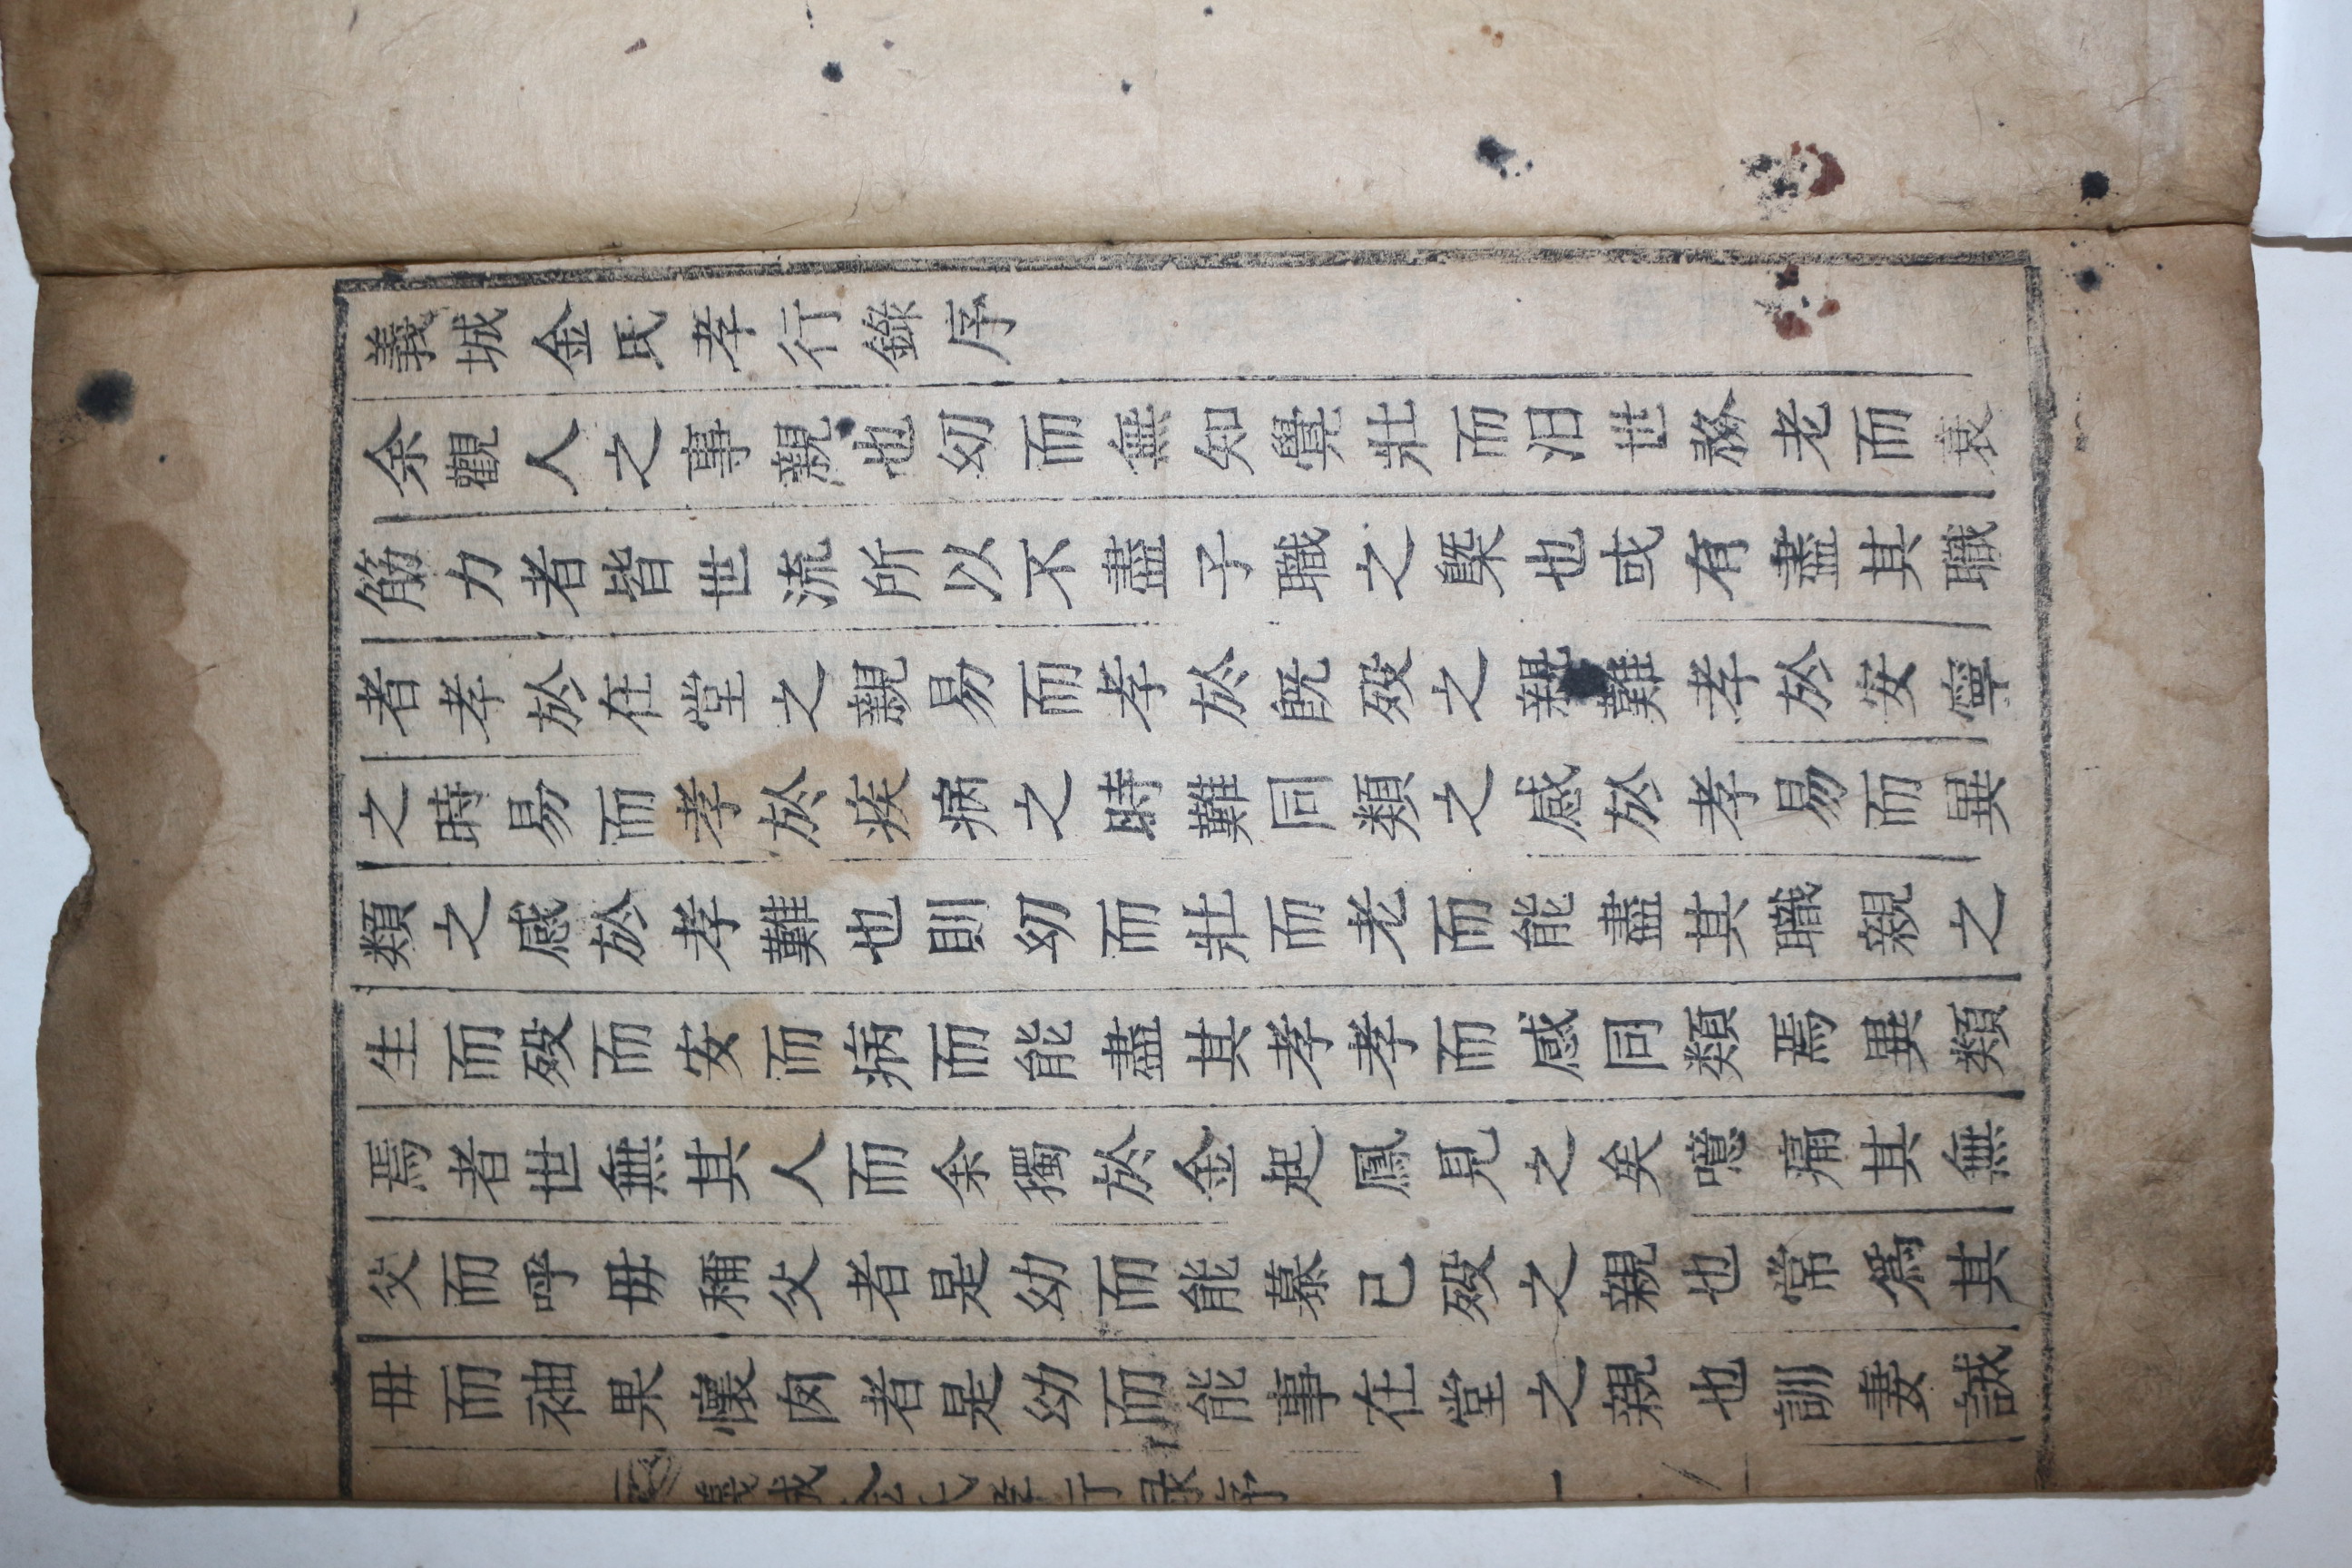 義城金氏孝行錄序
余觀人之事親也幼而無知覺壯而汨世務老而衰
筋力者皆世流所以不盡子職之槩也或有盡其職
者孝於在堂之親易而孝於旣歿之親難孝於安寧
之時易而孝於疾病之時難同類之感於孝易而異
類之感於孝難也則幼而壯而老而能盡其職親之
生而歿而安而病而能盡其孝孝而感同類焉異類
焉者世無其人而余獨於金起鳳見之矣噫痛其無
父而呼毋稱父者是幼而能慕已歿之親也常爲其
毋而袖果懷肉者是幼而能事在堂之親也訓妻誡
義城金氏孝行錄序 一